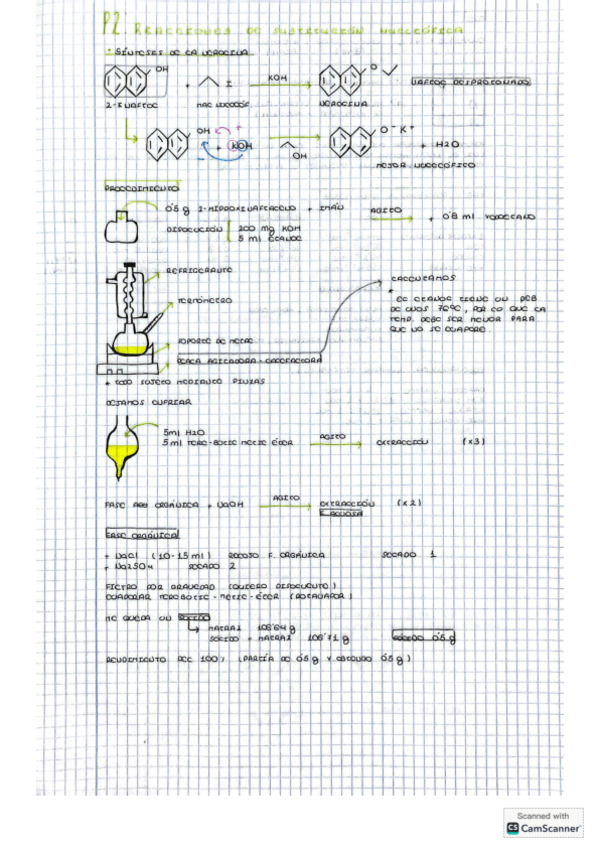 P2. REACCIONES DE SUSTITUCIÓN NUCLEÓFILA
· SÍNTESIS DE LA NEROLINA
OH + I KOH O NAFTOL DESPROTONADO
2-NAFTOL NEROLINA
OH + KOH OH O⁻K⁺ + H2O
MEJOR NUCLEÓFILO
PROCEDIMIENTO
0'5 g 2-HIDROXINAFTALENO + IMÁN AGITO + 0'8 ml YODOETANO
DISOLUCIÓN 200 mg KOH
5 ml ETANOL
REFRIGERANTE
TERMÓMETRO
CALENTAMOS
* EL ETANOL TIENE UN PEB
DE UNOS 78ºC, POR LO QUE LA
TEMP. DEBE SER MENOR PARA
QUE NO SE EVAPORE
SOPORTE DE METAL
PLACA AGITADORA-CALEFACTORA
* TODO SUJETO MEDIANTE PINZAS
DEJAMOS ENFRIAR
5ml H2O
5ml TERC-BUTIL METIL ÉTER AGITO EXTRACCIÓN (x3)
ORGÁNICA + NaOH AGITO EXTRACCIÓN (x2)
F. ACUOSA
FASE ORGÁNICA
+ NaCl (10-15ml) F. ORGÁNICA SECADO 1
+ Na2SO4 SECADO 2
FILTRO POR GRAVEDAD
EVAPORAR TERCBUTIL-METIL-ÉTER (ROTAVAPOR)
ME QUEDA UN SÓLIDO
MATRAZ 108'64 g
SÓLIDO + MATRAZ 108'71 g SÓLIDO 0'5 g
RENDIMIENTO DEL 100% (PARTÍA DE 0'5 g Y OBTENGO 0'5 g)
Scanned with
CS CamScanner